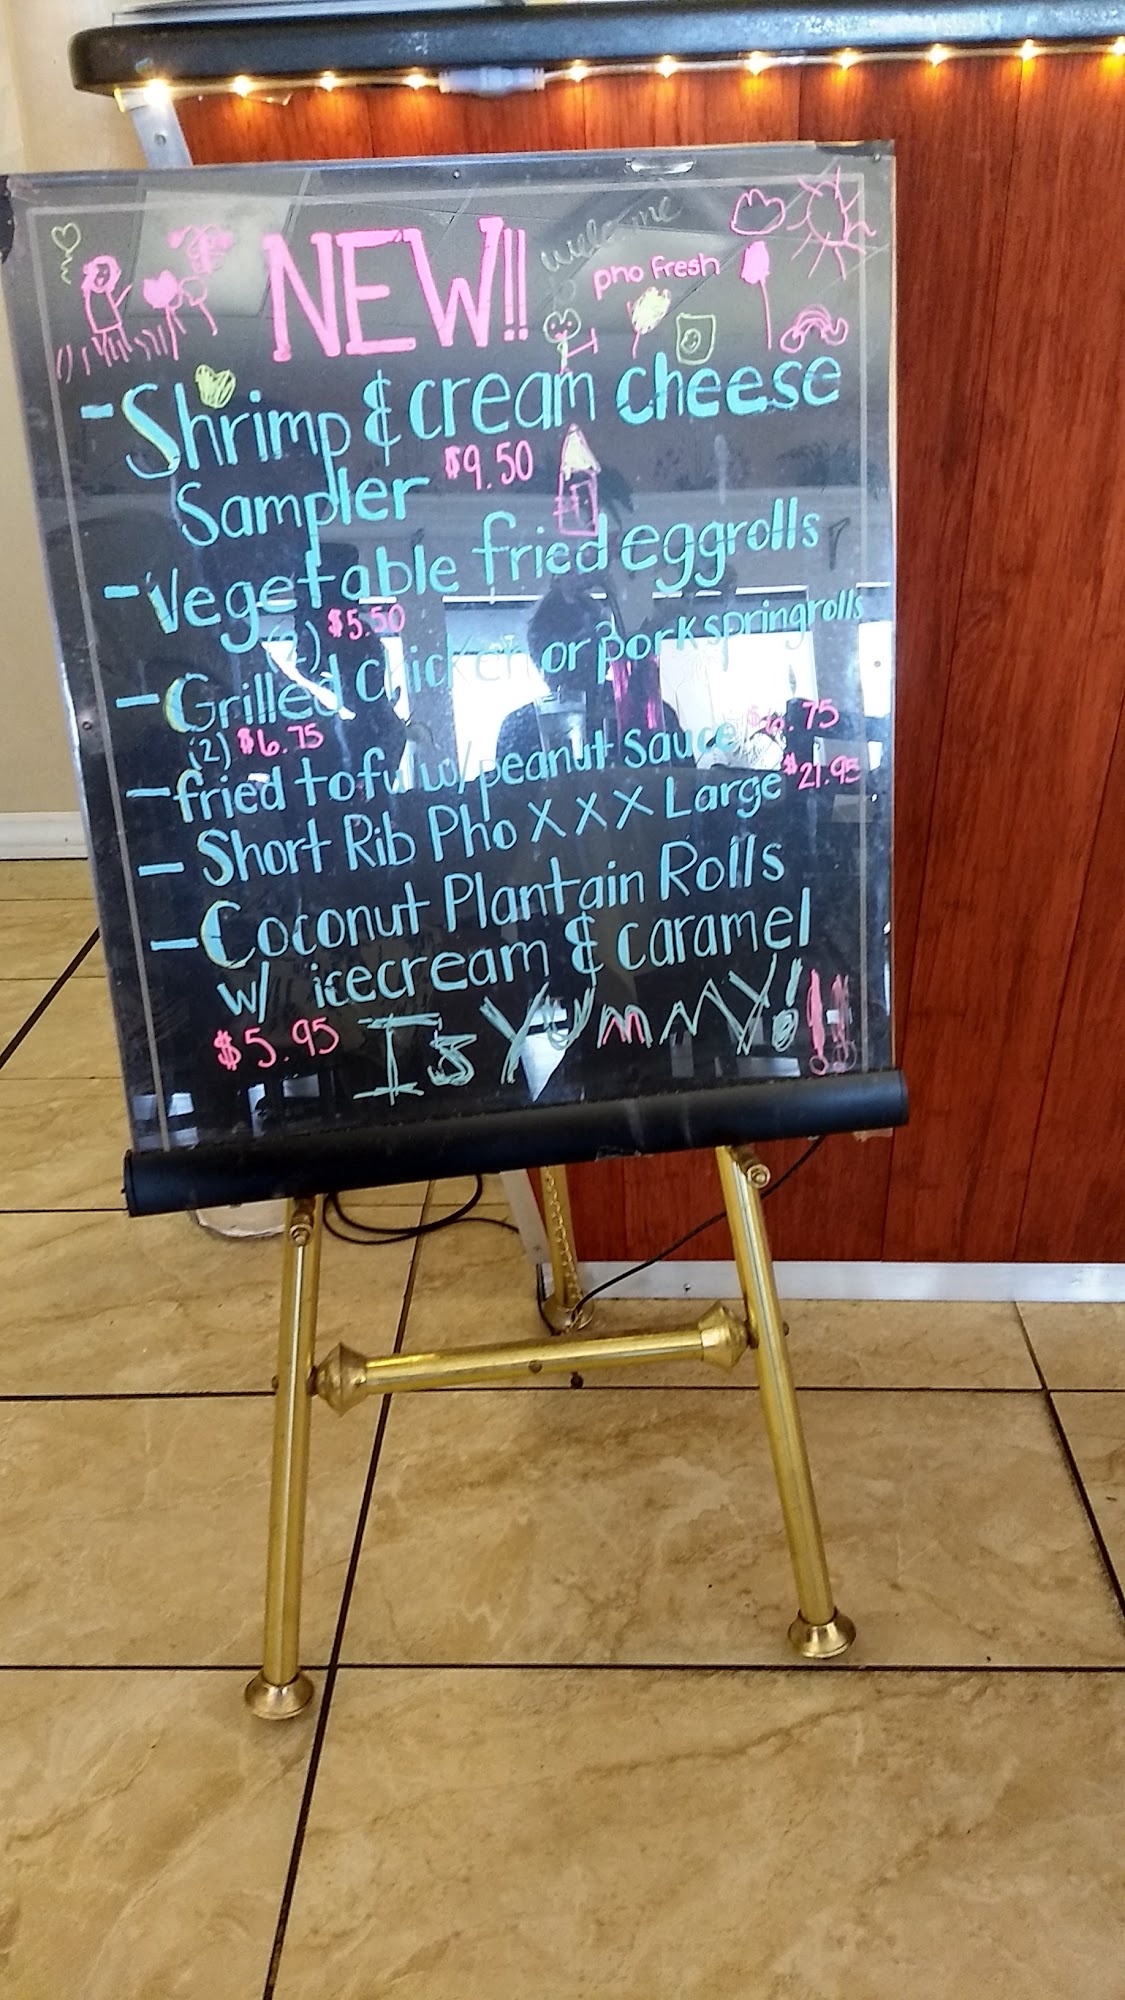 welcome
NEW!!
pho fresh
- Shrimp & cream cheese
Sampler $9.50
- Vegetable fried eggrolls
(2) $5.50
- Grilled chicken or pork springrolls
(2) $6.75
- fried tofu w/ peanut sauce $6.75
- Short Rib Pho XXX Large $21.95
- Coconut Plantain Rolls
w/ icecream & caramel
$5.95 Is YUMMY! !!